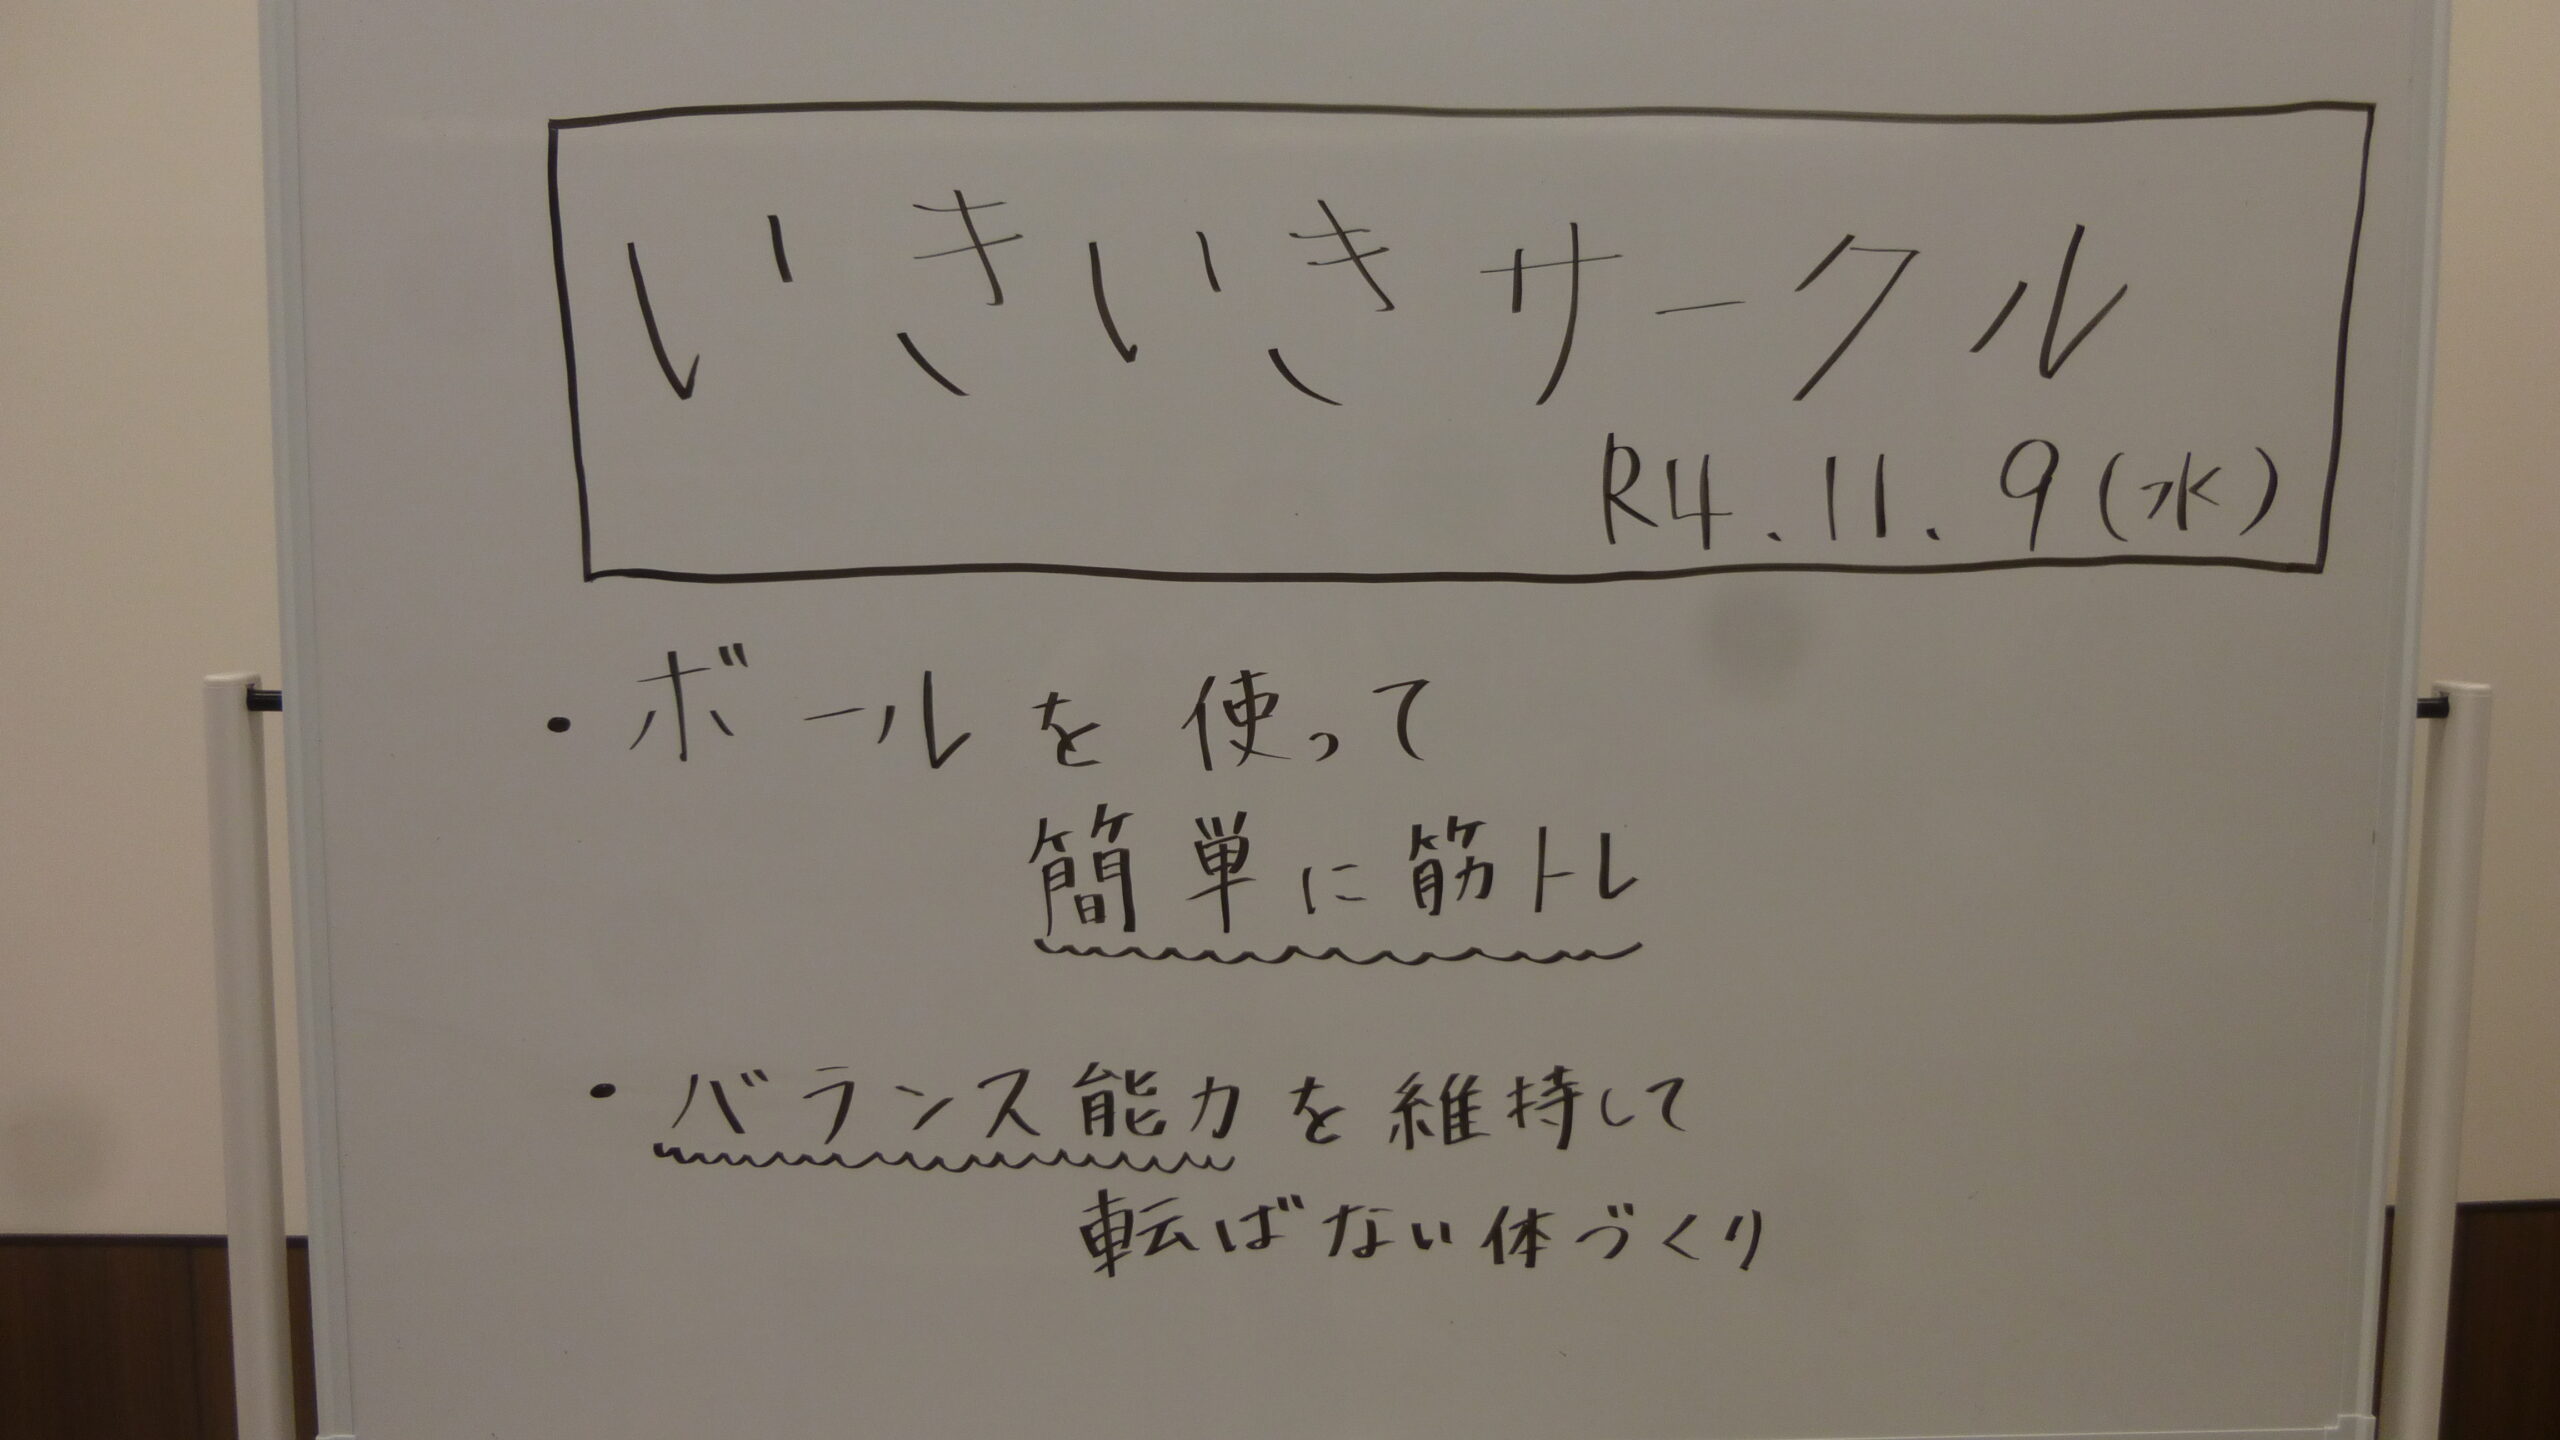 いきいきサークル
R4.11.9(水)
・ボールを使って
簡単に筋トレ
・バランス能力を維持して
転ばない体づくり